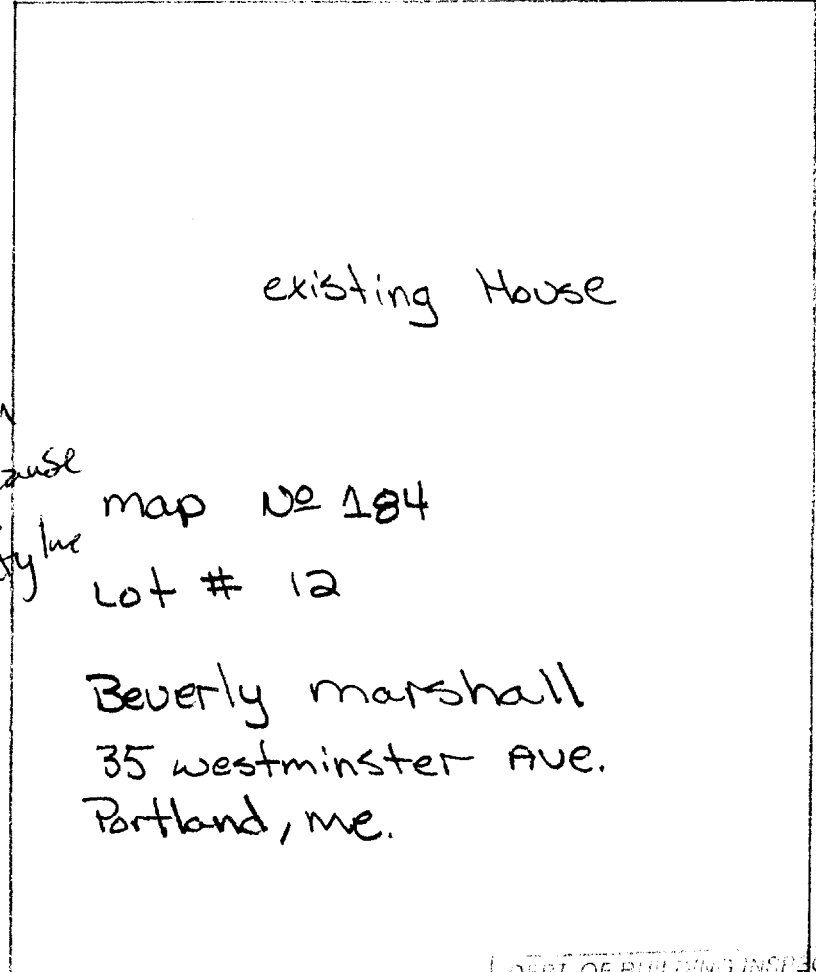 existing House
map Nº 184
Lot # 12
Beverly marshall
35 westminster Ave.
Portland, me.
DEPT. OF BUILDING